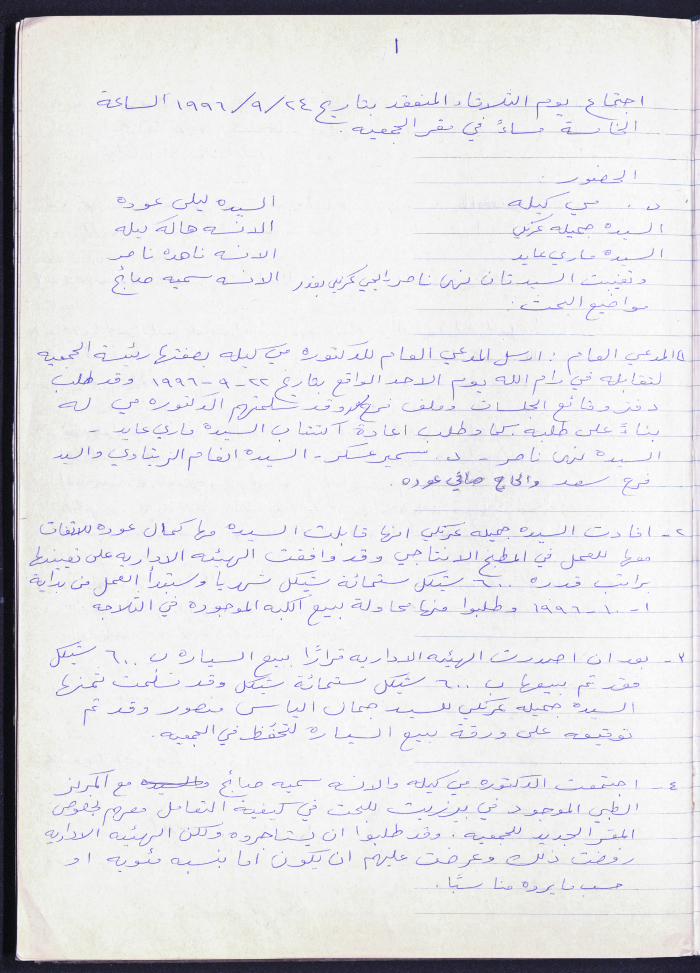 ١
اجتماع يوم الثلاثاء المنعقد بتاريخ ٢٤/٩/١٩٩٦ الساعة
الخامسة مساءً في مقر الجمعيه.
الحضور:
د. مي كيله السيده ليلى عوده
السيده جميله غزكلي الانسه هاله كيله
السيده ماري عايد الانسه ناهده ناصر
وتغيبت السيدتان نهى ناصر الانسه سميه صايج
مواضيع البحث:
١) المدعي العام: ارسل المدعي العام للدكتوره مي كيله بصفتها رئيسة الجمعيه
لتقابله في رام الله يوم الاحد الواقع بتاريخ ٢٢-٩-١٩٩٦ وقد طلب
دفتر وقائع الجلسات وملف وقد سلمتهم الدكتوره مي له
بناءً على طلبه. كما وطلب اعادة انتساب السيده ماري عايد -
السيده نهى ناصر - د. سمير عسكر - السيده انعام الريتاوي والسيد
فرح سعد والحاج صافي عوده.
٢- افادت السيده جميله غزكلي انها قابلت السيده مها كمال عوده للاتفاق
معها للعمل في المطبخ الانتاجي وقد وافقت الهيئه الاداريه على تعيينها
براتب قدره ٦٠٠ شيكل ستمائة شيكل شهريا وستبدأ العمل من بداية
١-١٠-١٩٩٦ وطلبوا منها محاولة بيع الكبه الموجوده في الثلاجه
٣- بعد ان اصدرت الهيئه الاداريه قرارًا ببيع السياره ب ٦٠٠ شيكل
فقد تم بيعها ب ٦٠٠ شيكل ستمائة شيكل وقد تسلمت ثمنها
السيده جميله غزكلي للسيد جمال الياس منصور وقد تم
توقيعه على ورقة بيع السياره لتحفظ في الجمعيه.
٤- اجتمعت الدكتوره مي كيله والانسه سميه صايج والسيده مع المركز
الطبي الموجود في بيرزيت للبحث في كيفية التعامل معهم بخصوص
المقر الجديد للجمعيه. وقد طلبوا ان يستاجروه ولكن الهيئه الاداريه
رفضت ذلك وعرضت عليهم ان يكون اما بنسبه مئويه او
حسب ما يروه مناسبًا.